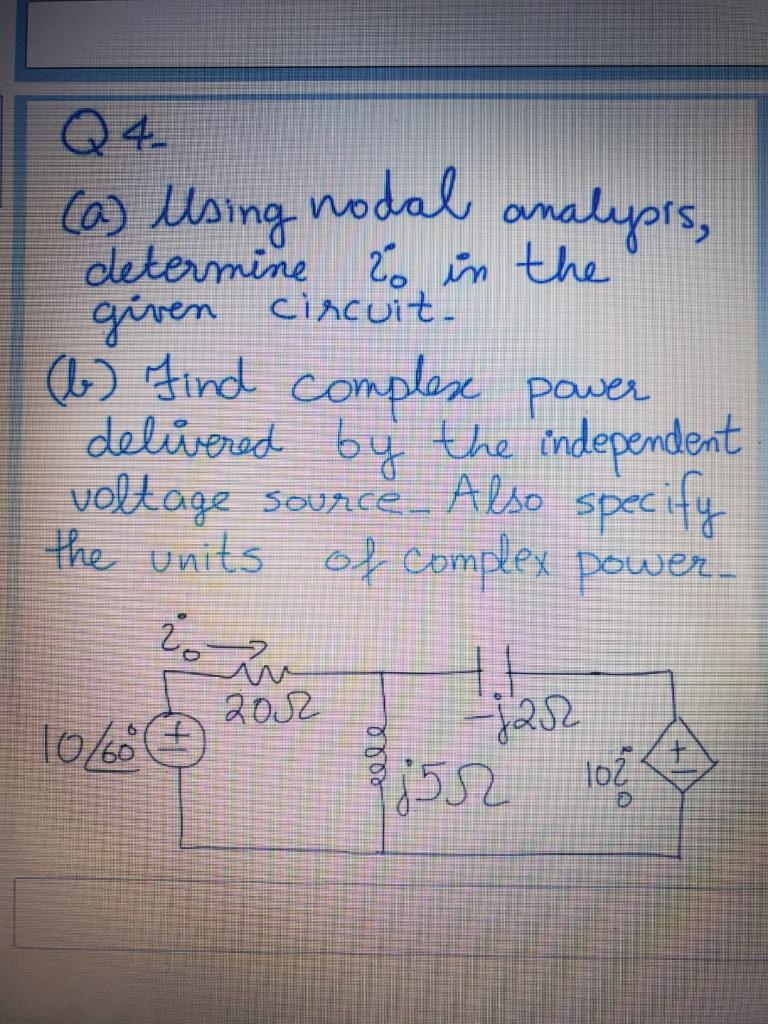 Q4-
(a) Using nodal analysis,
determine i₀ in the
given circuit-
(b) Find complex power
delivered by the independent
voltage source- Also specify
the units of complex power-
i₀ →
20Ω
-j2Ω
10∠60°
+
-
j5Ω
10i₀
+
-